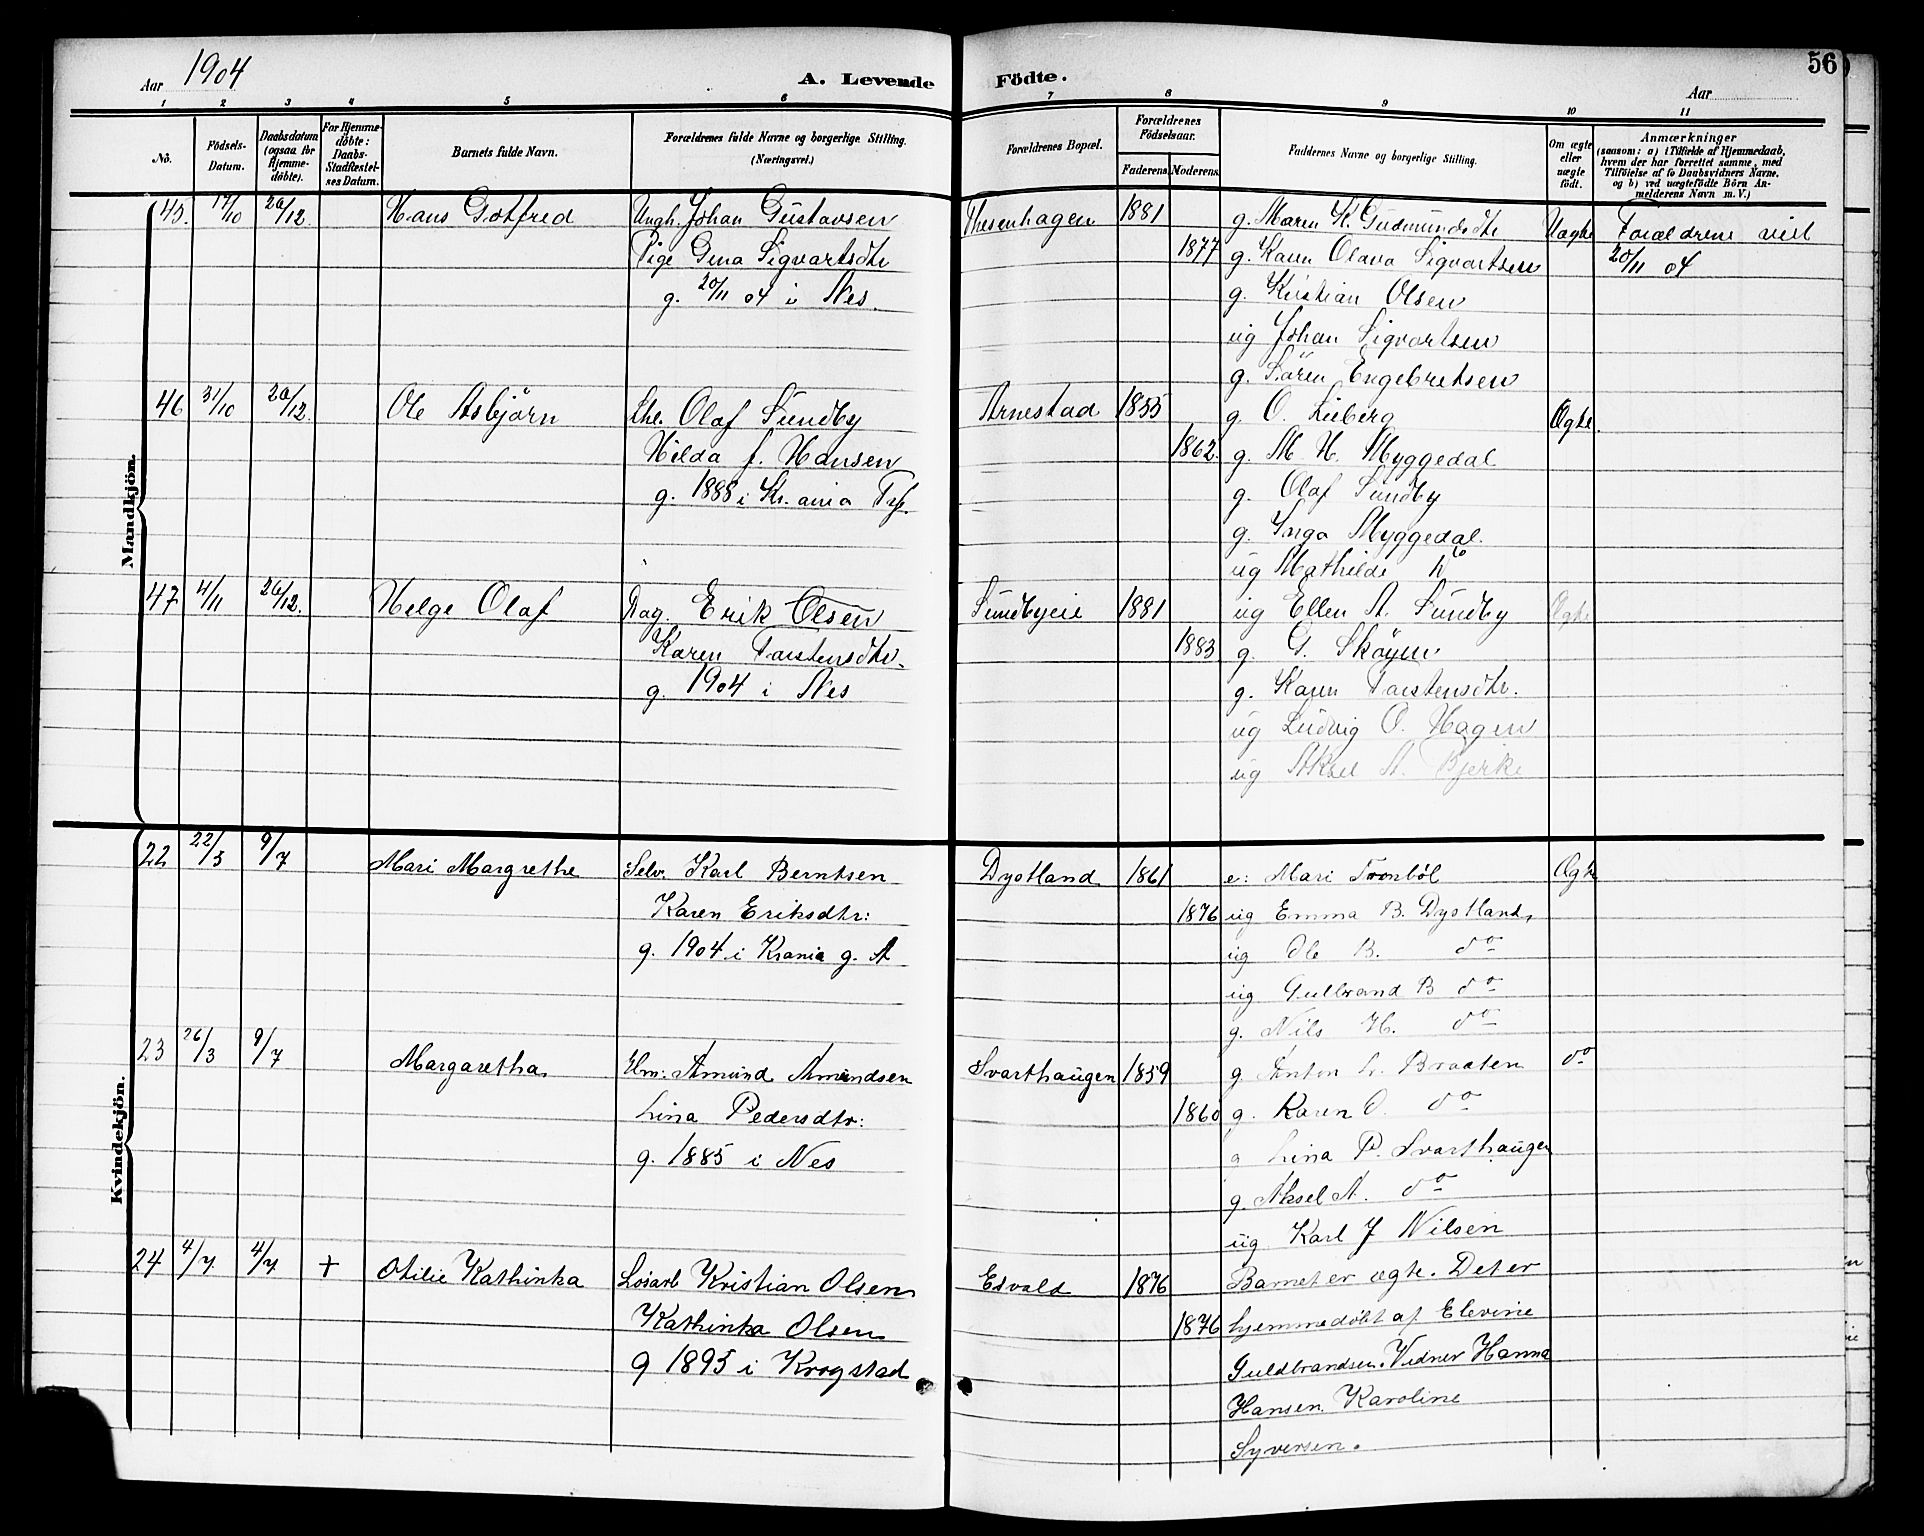 Aar 1904
A. Levende Födte.
56
Aar
1 2 3 4 5 6 7 8 9 10 11
No.
Födsels-Datum.
Daabsdatum (ogsaa for Hjemme-döbte).
For Hjemme-döbte: Daabs-Stadfestel-ses Datum.
Barnets fulde Navn.
Forældrenes fulde Navne og borgerlige Stilling.
(Næringsvei.)
Forældrenes Bopæl.
Forældrenes Födselsaar.
Faderens. Moderens.
Faddernes Navne og borgerlige Stilling.
Om ægte eller uægte födt.
Anmærkninger
(saasom: a) i Tilfælde af Hjemmedaab,
hvem der har forrettet samme, med
Tilföielse af to Daabsvidners Navne.
og b) ved uægtefödte Börn An-
melderens Navn m. V.)
Mandkjön.
45. 17/10 26/12. Hans Gotfred Ungk. Johan Gustavsen Thesenhagen 1881 g. Maren K. Gudmundsdtr Uægte Forældrene viet
Pige Gina Sigvartsdtr 1877 g. Karen Olava Sigvartsen 20/11 04
g. 20/11 04 i Nes. g. Kristian Olsen
ug Johan Sigvartsen
g. Sören Engebretsen
46 31/10 26/12. Ole Asbjörn Olaf Sundby Arnestad 1855 g. O. Lieberg Ægte.
Hilda f. Hansen 1862. g. M. H. Myggedal
g. 1885 i Kr.ania g. Olaf Sundby
g. Inga Myggedal.
ug Mathilde do
47 4/11 26/12. Helge Olaf Dag. Erik Olsen Sundbyeie 1881 ug Ellen A. Sundby Ægte
Karen Torstensdtr. 1883 g. G. Sköyen
g. 1904 i Nes g. Karen Torstensdtr.
ug Ludvig O. Hagen
ug Aksel A. Bjerke
Kvindekjön.
22 22/3 9/7 Mari Margrethe Selv. Karl Berntsen Dystland 1861 e: Mari Tronböl Ægte
Karen Eriksdtr: 1876 ug Emma B. Dystland,
g. 1904 i Krania g. A ug Ole B. do
ug Gulbrand B do
g. Nils H. do
23 26/3 9/7 Margaretha Hm: Amund Amundsen Svarthaugen 1859 g Anton L. Braaten do
Lina Pedersdtr: 1860 g. Karen O. do
g. 1885 i Nes g Lina P. Svarthaugen
g. Aksel A. do
ug Karl J Nilsen
24 4/7 4/7 + Otilie Kathinka Lösarb Kristian Olsen Esvald 1876 Barnet er ægte. Det er
Kathinka Olsen 1876 hjemmedöbt af Elevine
g 1895 i Krogstad Guldbrandsen. Vidner Hanna
Hansen. Karoline
Syversen.